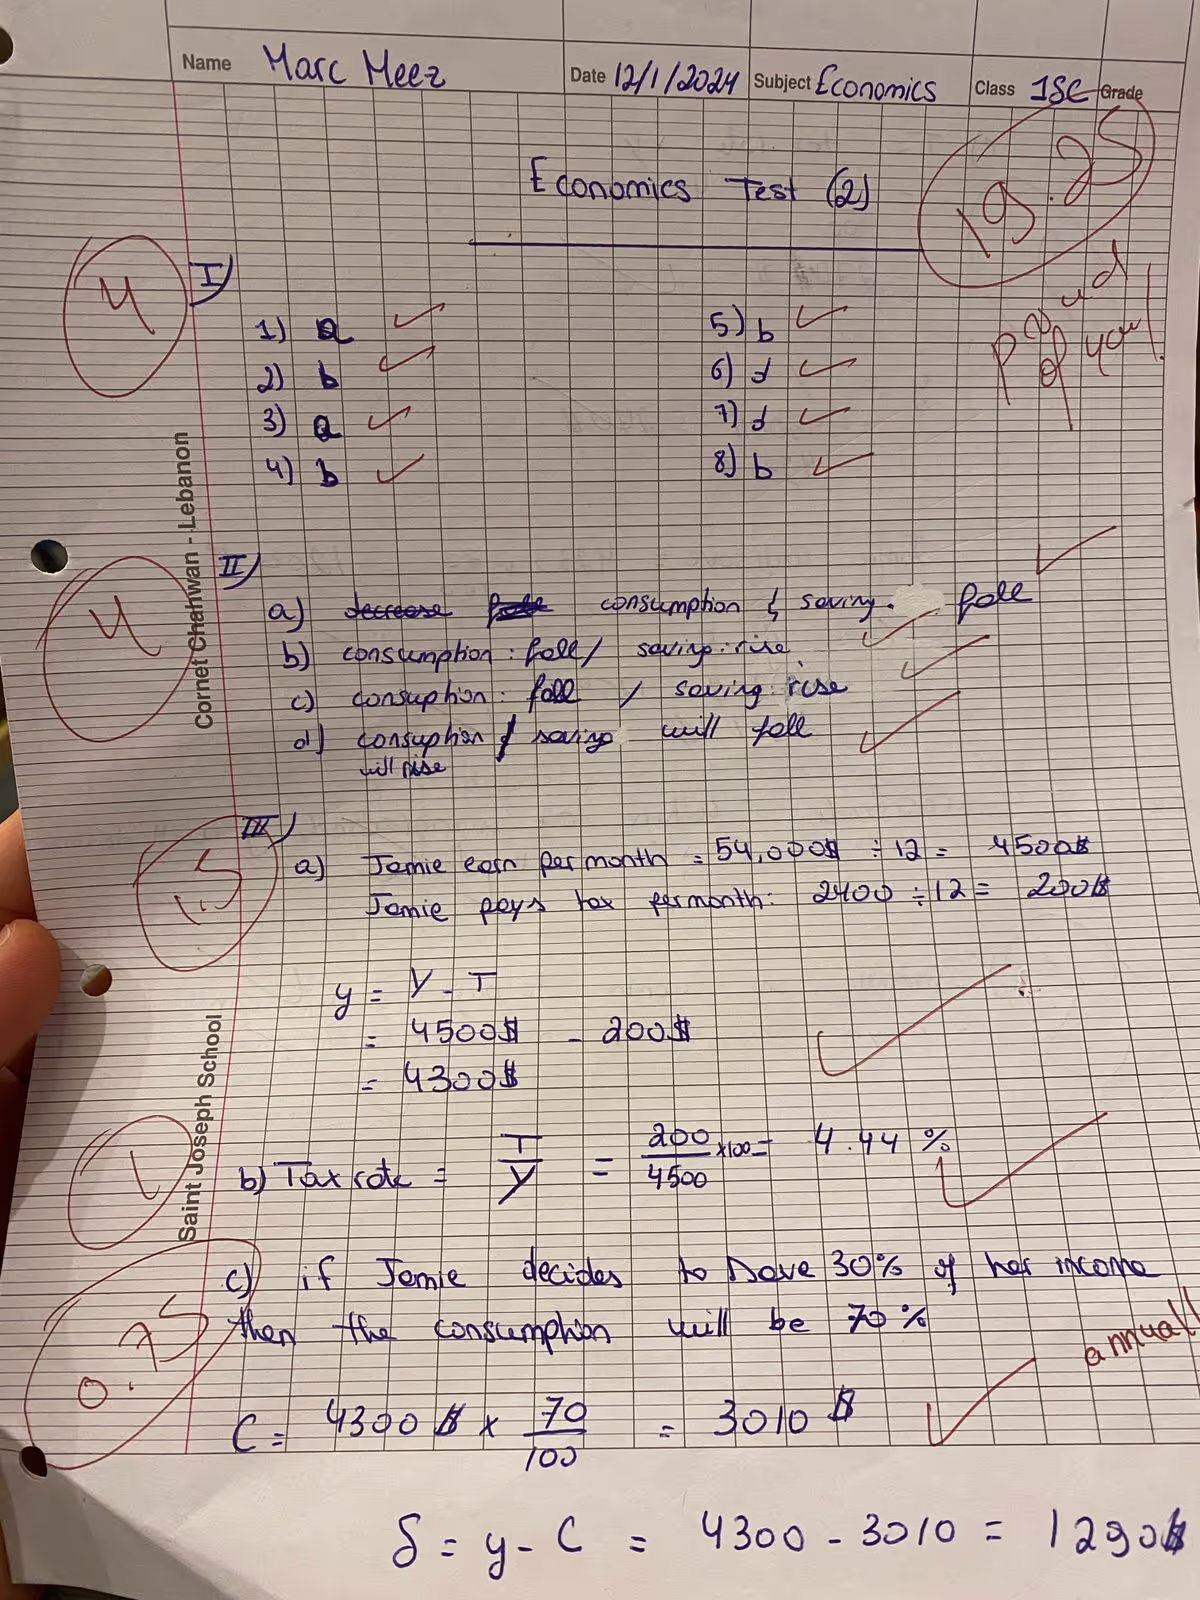 Name Marc Meez Date 12/1/2024 Subject Economics Class 1SC Grade
19.25
Economics Test (2)
Proud
of you!
4
I)
1) a
2) b
3) a
4) b
5) b
6) d
7) d
8) b
Cornet Chahwan - Lebanon
4
II)
a) decrease consumption & saving. fall
b) consumption: fall / saving: rise
c) consuption: fall / saving: rise
d) consuption / saving will fall
will rise
III)
1.5
a) Jamie earn per month = 54,000$ ÷ 12 = 4500$
Jamie pays tax per month: 2400 ÷ 12 = 200$
y = Y - T
= 4500$ - 200$
= 4300$
Saint Joseph School
1
b) Tax rate = T/Y = 200/4500 x100 = 4.44 %
0.75
c) if Jamie decides to save 30% of her income
then the consumption will be 70%
annual
C = 4300$ x 70/100 = 3010$
S = y - C = 4300 - 3010 = 1290$